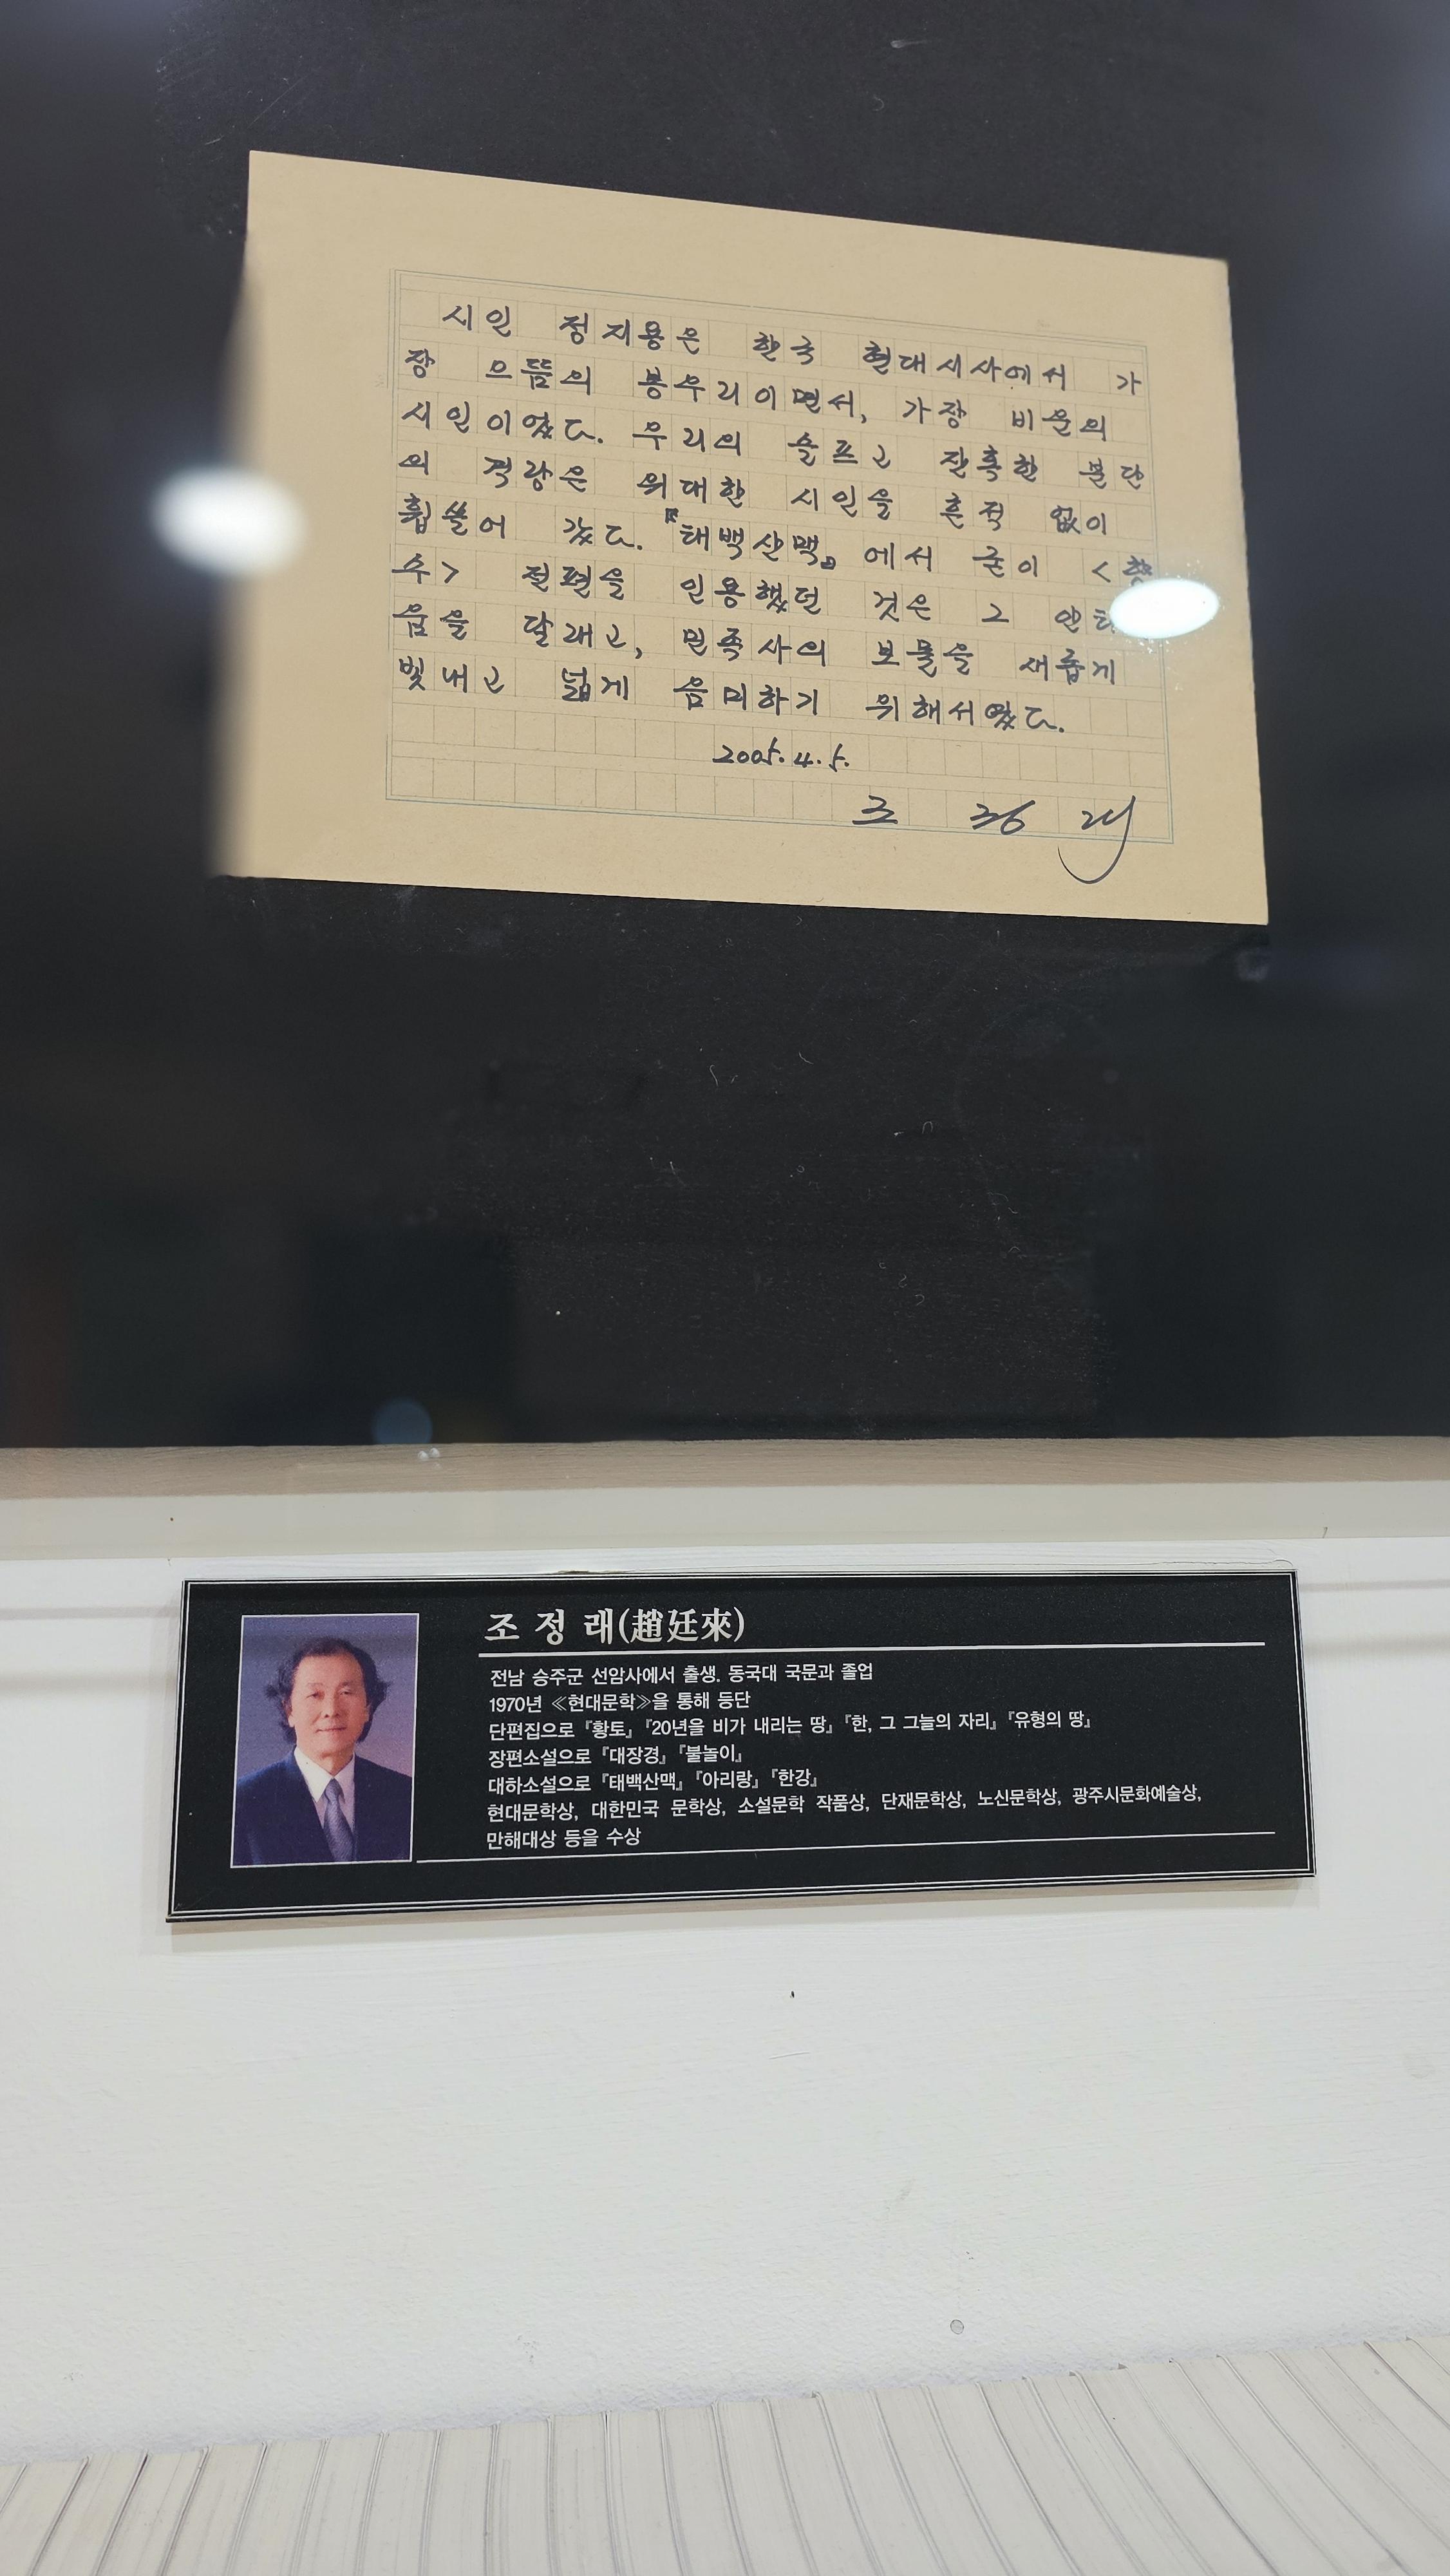 시인 정지용은 한국 현대시사에서 가
장 으뜸의 봉우리이면서, 가장 비운의
시인이었다. 우리의 슬프고 잔혹한 분단
의 격랑은 위대한 시인을 흔적 없이
휩쓸어 갔다. 『태백산맥』에서 굳이 <향
수> 절편을 인용했던 것은 그
움을 달래고, 민족사의 보물을 새롭게
빛내고 넓게 음미하기 위해서였다.
2005. 4. 5.
조 정 래
조 정 래(趙廷來)
전남 승주군 선암사에서 출생. 동국대 국문과 졸업
1970년 ≪현대문학≫을 통해 등단
단편집으로 『황토』 『20년을 비가 내리는 땅』 『한, 그 그늘의 자리』 『유형의 땅』
장편소설으로 『대장경』 『불놀이』
대하소설으로 『태백산맥』 『아리랑』 『한강』
현대문학상, 대한민국 문학상, 소설문학 작품상, 단재문학상, 노신문학상, 광주시문화예술상,
만해대상 등을 수상